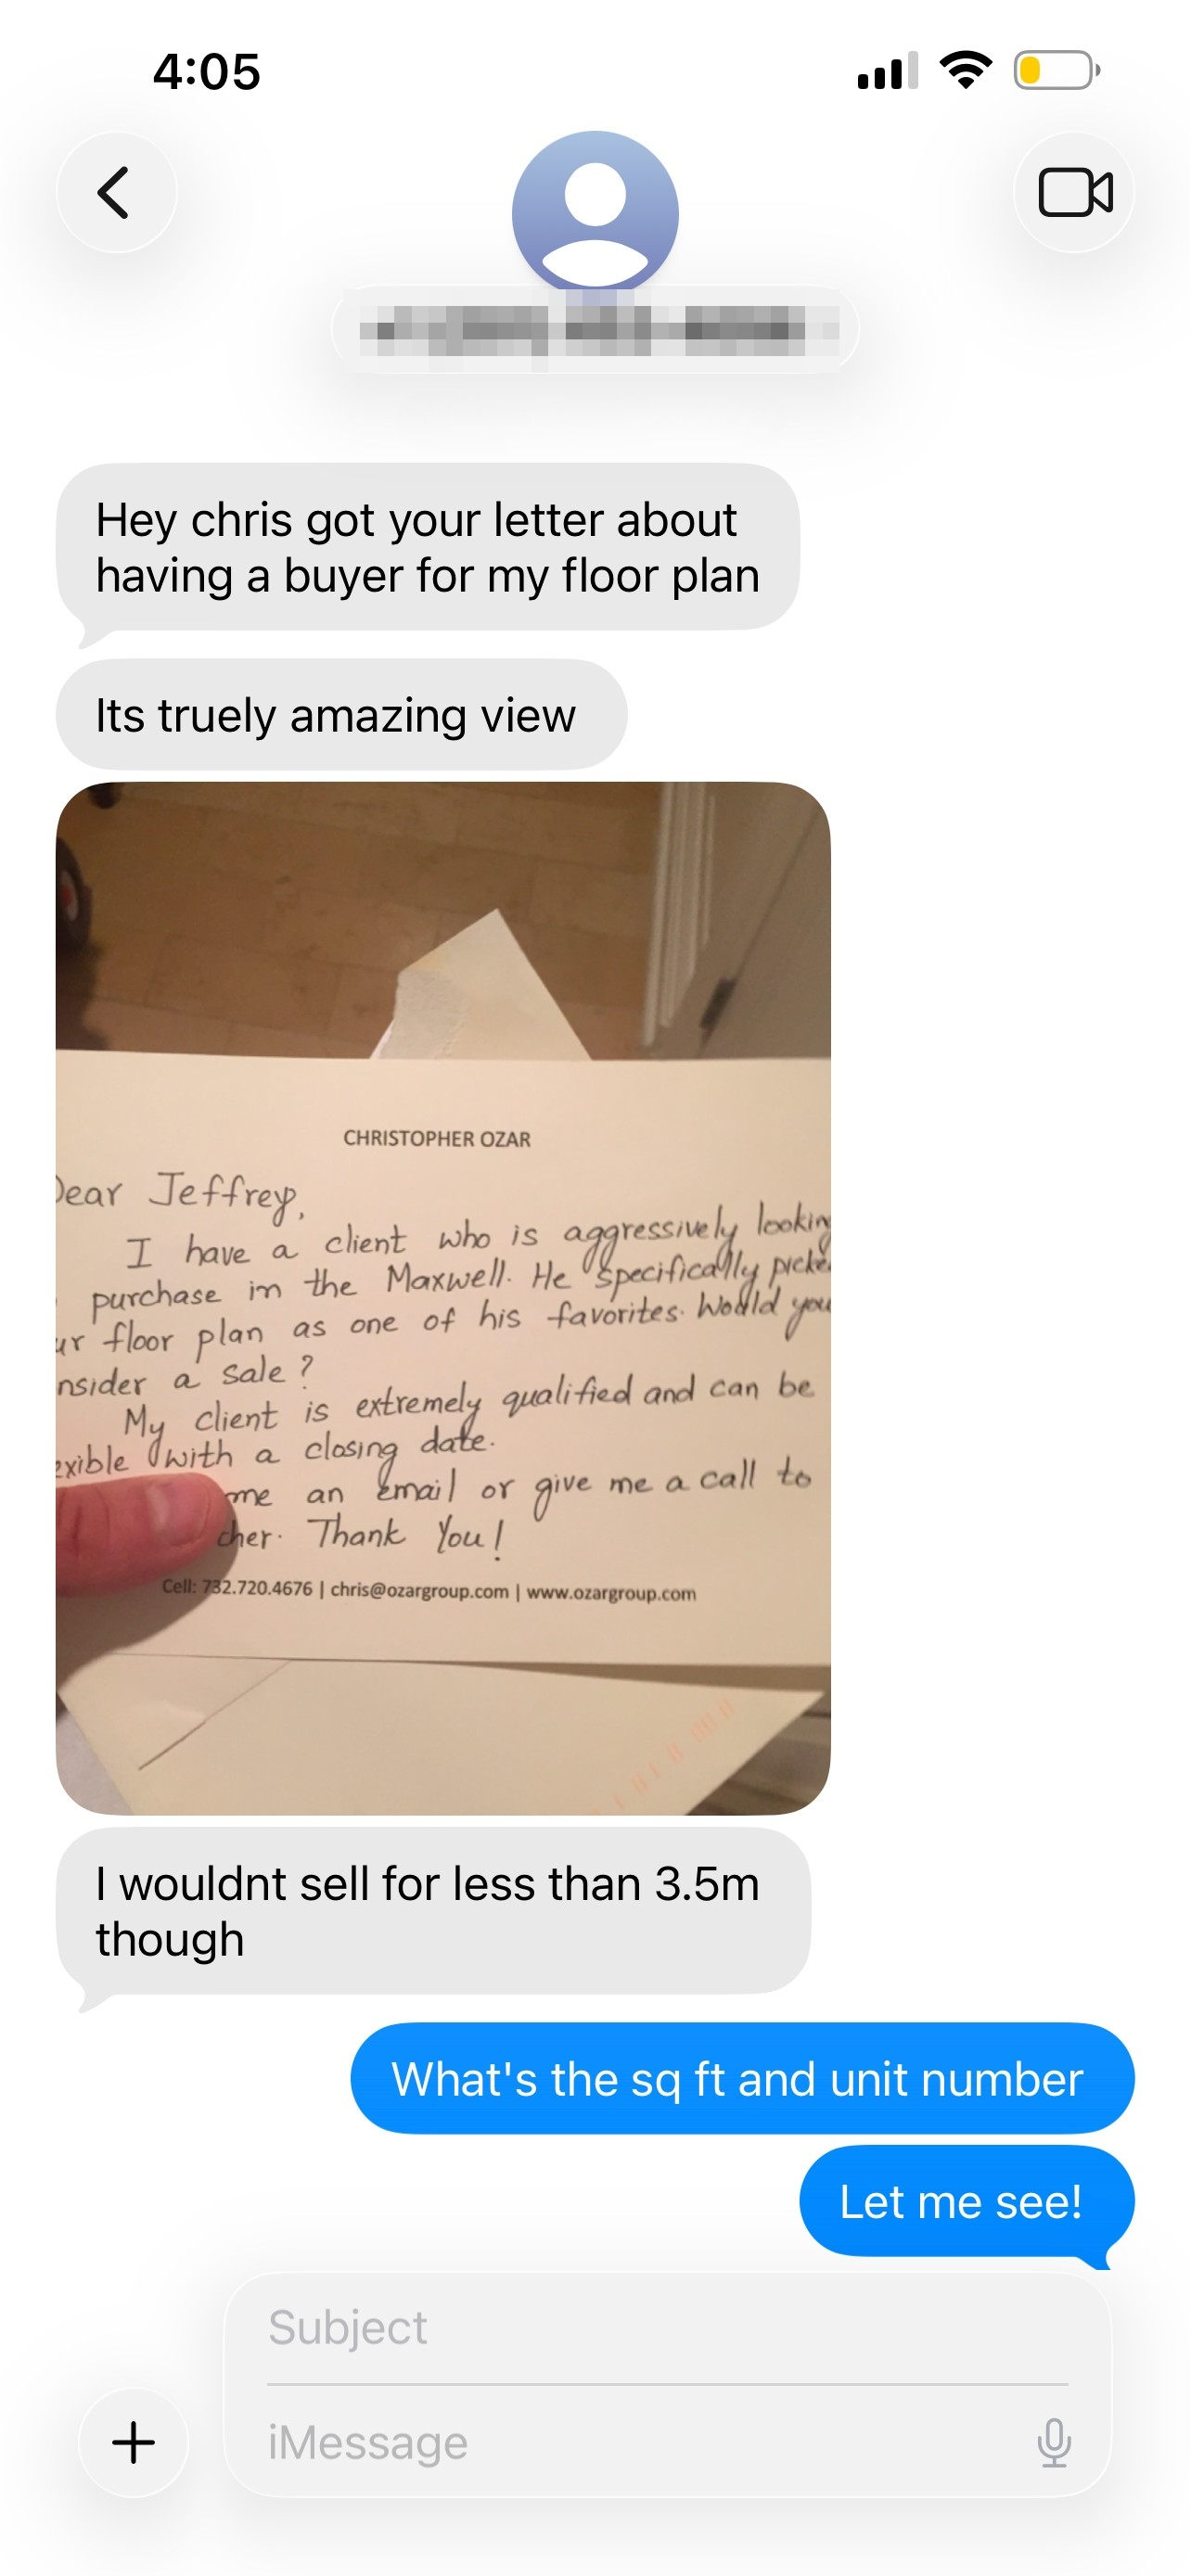 4:05
Hey chris got your letter about
having a buyer for my floor plan
Its truely amazing view
CHRISTOPHER OZAR
Dear Jeffrey,
I have a client who is aggressively lookin
purchase in the Maxwell. He specifically picke
ur floor plan as one of his favorites. Would you
nsider a sale?
My client is extremely qualified and can be
exible with a closing date.
me an email or give me a call to
cher. Thank You!
Cell: 732.720.4676 | chris@ozargroup.com | www.ozargroup.com
I wouldnt sell for less than 3.5m
though
What's the sq ft and unit number
Let me see!
Subject
iMessage